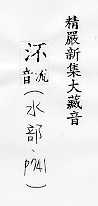 精嚴新集大藏音
音流(水部、p741)